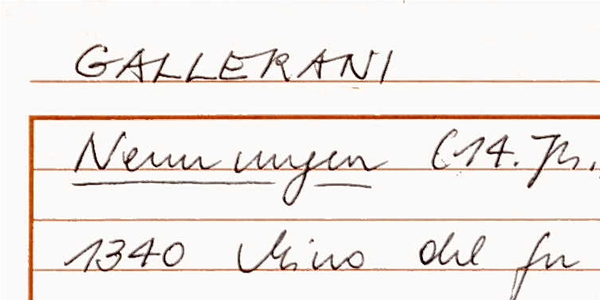 GALLERANI
Nennungen (14. Jh.
1340 Mino del fu